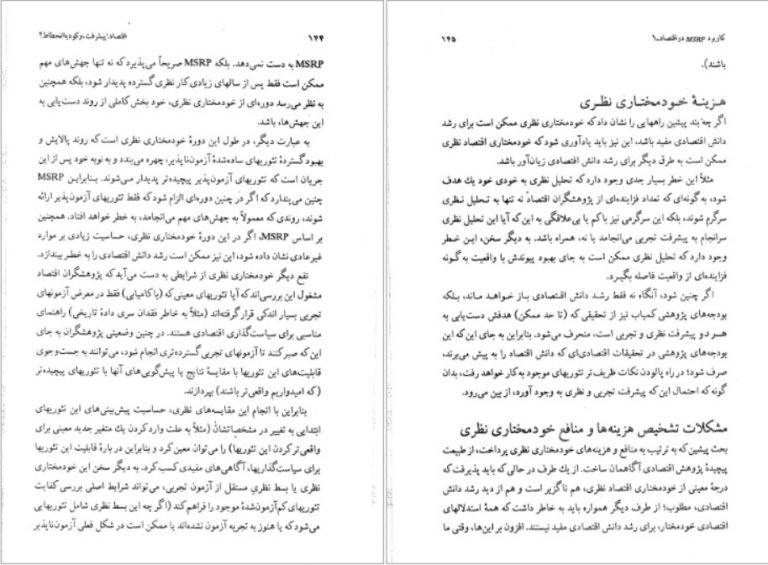 ۱۴۴ اقتصاد: پیشرفت، رکود یا انحطاط؟
MSRP به دست نمی‌دهد. بلکه MSRP صریحاً می‌پذیرد که نه تنها جهش‌های مهم
ممکن است فقط پس از سالهای زیادی کار نظری گسترده پدیدار شود، بلکه همچنین
به نظر می‌رسد دوره‌ای از خودمختاری نظری، خود بخش کاملی از روند دست‌یابی به
این جهش‌ها، باشد.
به عبارت دیگر، در طول این دورهٔ خودمختاری نظری است که روند پالایش و
بهبود گستردهٔ تئوریهای ساده‌شدهٔ آزمون‌ناپذیر، چهره می‌بندد و به نوبه خود پس از این
جریان است که تئوریهای آزمون‌پذیر پیچیده‌تر پدیدار می‌شوند. بنابراین MSRP
چنین می‌پندارد که اگر در چنین دوره‌ای الزام شود که فقط تئوریهای آزمون‌پذیر ارائه
شوند، روندی که معمولاً به جهش‌های مهم می‌انجامد، به خطر خواهد افتاد. همچنین
بر اساس MSRP، اگر در این دورهٔ خودمختاری نظری، حساسیت زیادی بر موارد
غیرعادی نشان داده شود، این نیز ممکن است رشد دانش اقتصادی را به خطر بیندازد.
نفع دیگر خودمختاری نظری از شرایطی به دست می‌آید که پژوهشگران اقتصاد
مشغول این بررسی‌اند که آیا تئوریهای معینی که (با کامیابی) فقط در معرض آزمونهای
تجربی بسیار اندکی قرار گرفته‌اند (مثلاً به خاطر فقدان سری دادهٔ تاریخی) راهنمای
مناسبی برای سیاست‌گذاری اقتصادی هستند. در چنین وضعیتی پژوهشگران به جای
این که صبر کنند تا آزمونهای تجربی گسترده‌تری انجام شود، می‌توانند به جست‌وجوی
قابلیت‌های این تئوریها با مقایسهٔ نتایج یا پیش‌گویی‌های آنها با تئوریهای پیچیده‌تر
(که امیدواریم واقعی‌تر باشند) بپردازند.
بنابراین با انجام این مقایسه‌های نظری، حساسیت پیش‌بینی‌های این تئوریهای
ابتدایی به تغییر در مشخصاتشان (مثلاً به علت وارد کردن یك متغیر جدید معینی برای
واقعی‌تر کردن این تئوریها) را می‌توان معین کرد و بنابراین در بارهٔ قابلیت این تئوریها
برای سیاست‌گذاریها، آگاهی‌های مفیدی کسب کرد. به دیگر سخن این خودمختاری
نظری یا بسط نظری مستقل از آزمون تجربی، می‌تواند شرایط اصلی بررسی کفایت
تئوریهای کم‌آزمون‌شدهٔ موجود را فراهم کند (اگر چه این بسط نظری شامل تئوریهایی
می‌شود که یا هنوز به تجربه آزمون نشده‌اند یا ممکن است در شکل فعلی آزمون‌ناپذیر
کاربرد MSRP در اقتصاد ـ ۱ ۱۴۵
باشند).
هزینهٔ خودمختاری نظری
اگر چه بند پیشین راههایی را نشان داد که خودمختاری نظری ممکن است برای رشد
دانش اقتصادی مفید باشد، این نیز باید یادآوری شود که خودمختاری اقتصاد نظری
ممکن است به طرق دیگر برای رشد دانش اقتصادی زیان‌آور باشد.
مثلاً این خطر بسیار جدی وجود دارد که تحلیل نظری به خودی خود یك هدف
شود، به گونه‌ای که تعداد فزاینده‌ای از پژوهشگران اقتصاد نه تنها به تحلیل نظری
سرگرم شوند، بلکه این سرگرمی نیز با کم یا بی‌علاقگی به این که آیا این تحلیل نظری
سرانجام به پیشرفت تجربی می‌انجامد یا نه، همراه باشد. به دیگر سخن، این خطر
وجود دارد که تحلیل نظری ممکن است به جای بهبود پیوندش با واقعیت به گونه
فزاینده‌ای از واقعیت فاصله بگیرد.
اگر چنین شود، آنگاه نه فقط رشد دانش اقتصادی باز خواهد ماند، بلکه
بودجه‌های پژوهشی کمیاب نیز از تحقیقی که (تا حد ممکن) هدفش دست‌یابی به
هر دو پیشرفت نظری و تجربی است، منحرف می‌شود. بنابراین به جای این که این
بودجه‌های پژوهشی در تحقیقات اقتصادی‌ای که دانش اقتصاد را به پیش می‌برند،
صرف شود؛ در راه پالودن نکات ظریف‌تر تئوریهای موجود به کار خواهد رفت، بدان
گونه که احتمال این که پیشرفت تجربی و نظری به وجود آورد، از بین می‌رود.
مشکلات تشخیص هزینه‌ها و منافع خودمختاری نظری
بحث پیشین که به ترتیب به منافع و هزینه‌های خودمختاری نظری پرداخت، از طبیعت
پیچیدهٔ پژوهش اقتصادی آگاهمان ساخت. از یك طرف در حالی که باید پذیرفت که
درجهٔ معینی از خودمختاری اقتصاد نظری، هم ناگزیر است و هم از دید رشد دانش
اقتصادی، مطلوب؛ از طرف دیگر همواره باید به خاطر داشت که همهٔ استدلالهای
اقتصادی خودمختار، برای رشد دانش اقتصادی مفید نیستند. افزون بر این‌ها، وقتی ما